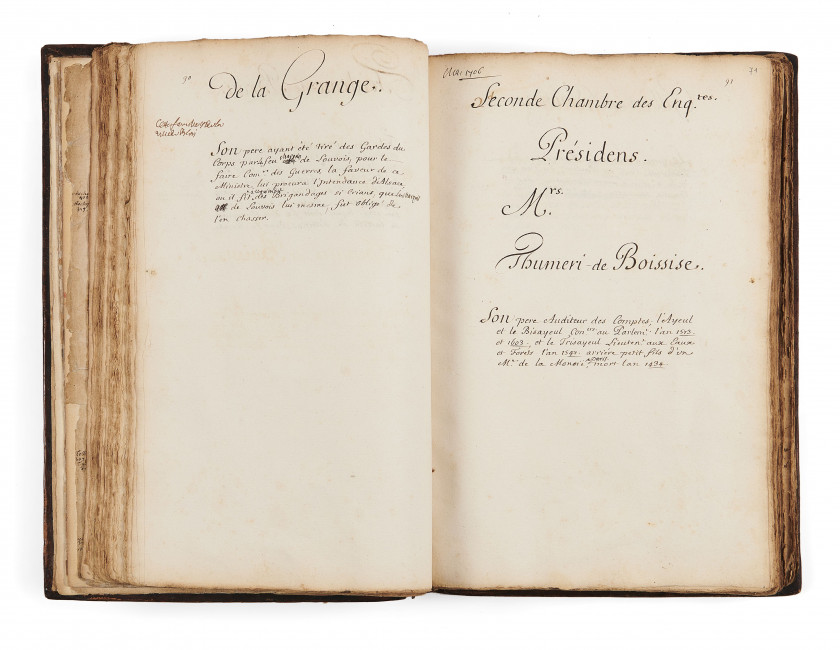 30
de la Grange.
Son pere ayant été tiré des Gardes du
Corps par feu de Louvois, pour le
faire Com.re des Guerres, la faveur de ce
Ministre, lui procura l'Intendance d'Alsace
ou il fit des Brigandages si crians, que
de Louvois lui mesme, fut obligé de
l'en chasser.
Mai 1706
31
31
Seconde Chambre des Enq.tes.
Présidens.
M.rs
Thumeri de Boissise.
Son pere Auditeur des Comptes; l'Ayeul
et le Bisayeul Con.ers au Parlem.t l'an 1573
et 1603, et le Trisayeul Lieuten.t aux Eaux
et Forets l'an 1542. arriére petit fils d'un
M.e de la Monoie mort l'an 1434